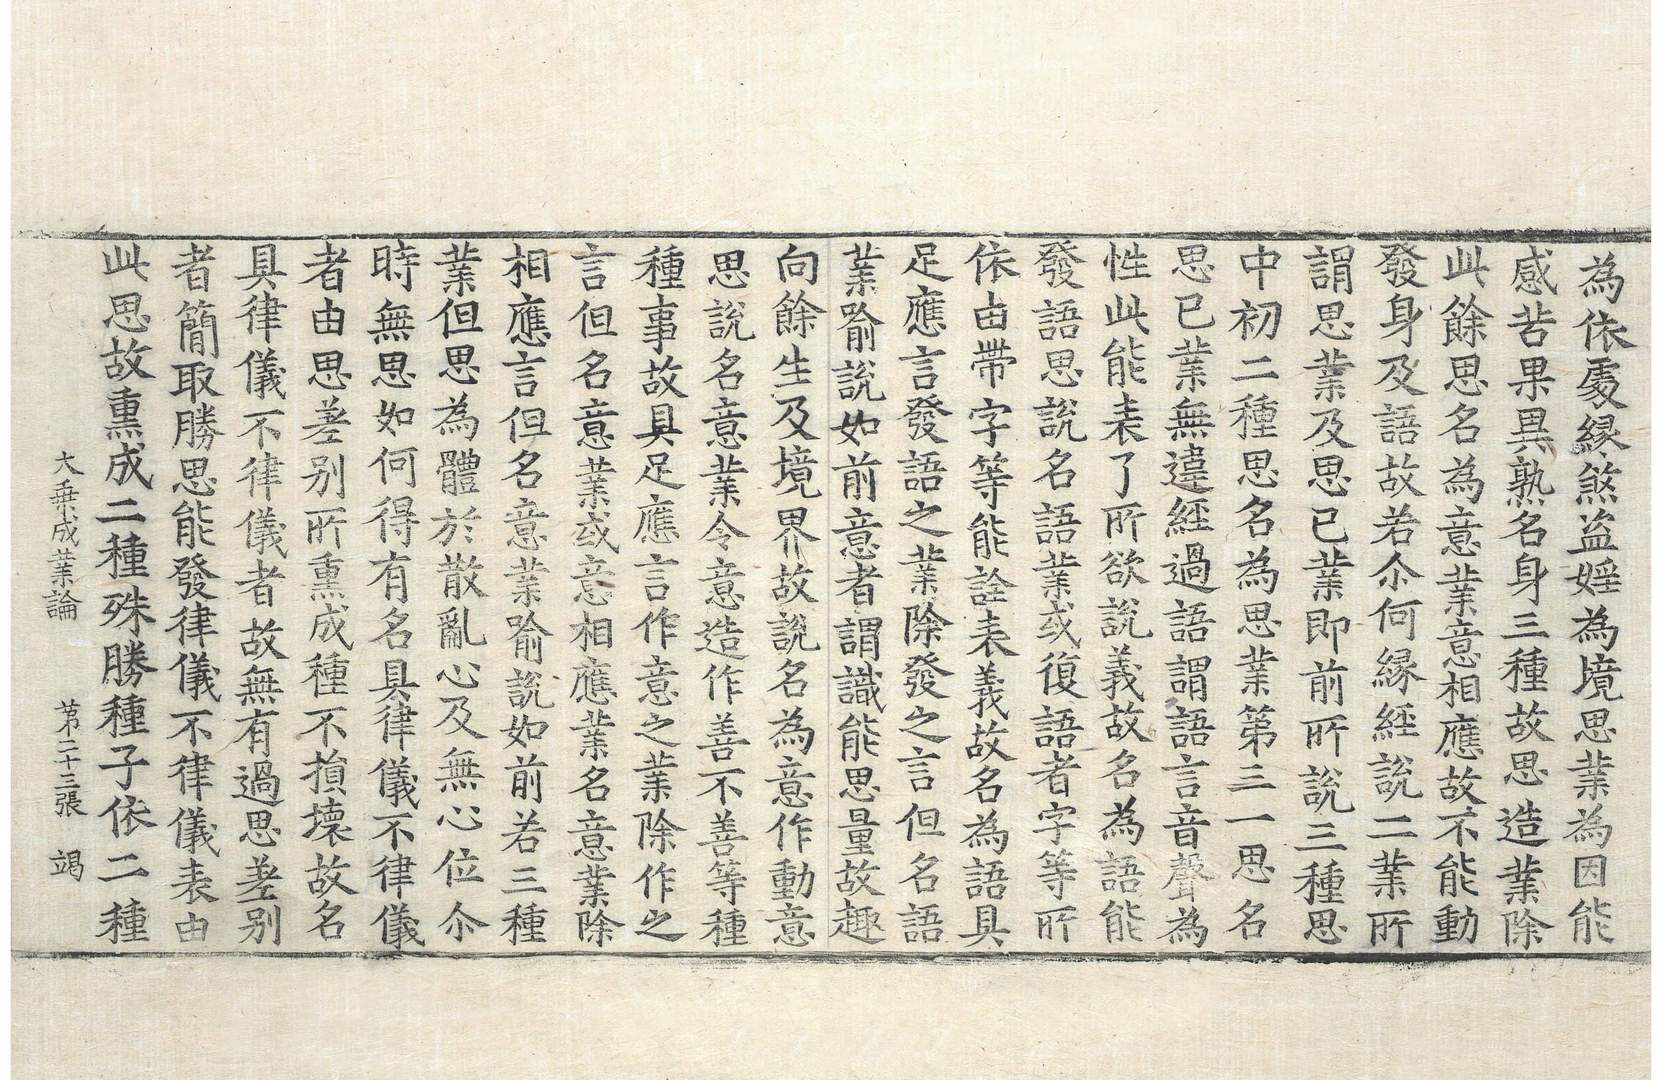 為依處緣煞盜婬為境思業為因能
感苦果異熟名身三種故思造業除
此餘思名為意業意相應故不能動
發身及語故若尒何緣經說二業所
謂思業及思已業即前所說三種思
中初二種思名為思業第三一思名
思已業無違經過語謂語言音聲為
性此能表了所欲說義故名為語能
發語思說名語業或復語者字等所
依由帶字等能詮表義故名為語具
足應言發語之業除發之言但名語
業喻說如前意者謂識能思量故趣
向餘生及境界故說名為意作動意
思說名意業令意造作善不善等種
種事故具足應言作意之業除作之
言但名意業或意相應業名意業除
相應言但名意業喻說如前若三種
業但思為體於散亂心及無心位尒
時無思如何得有名具律儀不律儀
者由思差別所熏成種不損壞故名
具律儀不律儀者故無有過思差別
者簡取勝思能發律儀不律儀表由
此思故熏成二種殊勝種子依二種
大乗成業論 第二十三張 竭